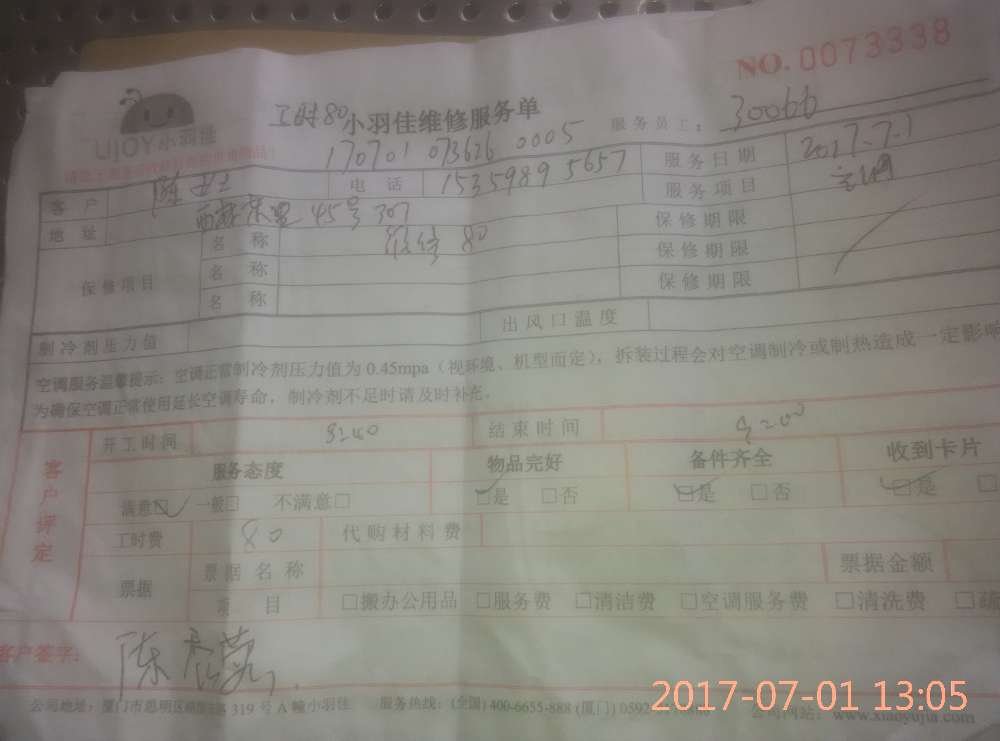 NO. 0073338
LIJOY小羽佳
工时80
小羽佳维修服务单
服务员工： 30066
170701 073626 0005
客户 陈女士 电话 15359895657 服务日期 2017.7.1
地址 45号307 服务项目 空调
保修项目
名称 维修 80 保修期限
名称 保修期限
名称 保修期限
制冷剂压力值 出风口温度
空调服务温馨提示：空调正常制冷剂压力值为0.45mpa（视环境、机型而定），拆装过程会对空调制冷或制热造成一定影响
为确保空调正常使用延长空调寿命，制冷剂不足时请及时补充。
客户评定
开工时间 8:40 结束时间 9:00
服务态度 物品完好 备件齐全 收到卡片
满意☑ 一般□ 不满意□ ☑是 □否 ☑是 □否 ☑是 □
工时费 80 代购材料费
票据 票据名称 票据金额
项目 □搬办公用品 □服务费 □清洁费 □空调服务费 □清洗费 □疏
客户签字：
公司地址：厦门市思明区 319号A幢小羽佳 服务热线：(全国) 400-6655-888 (厦门) 0592- 公司网站：www.xiaoyujia.com
2017-07-01 13:05